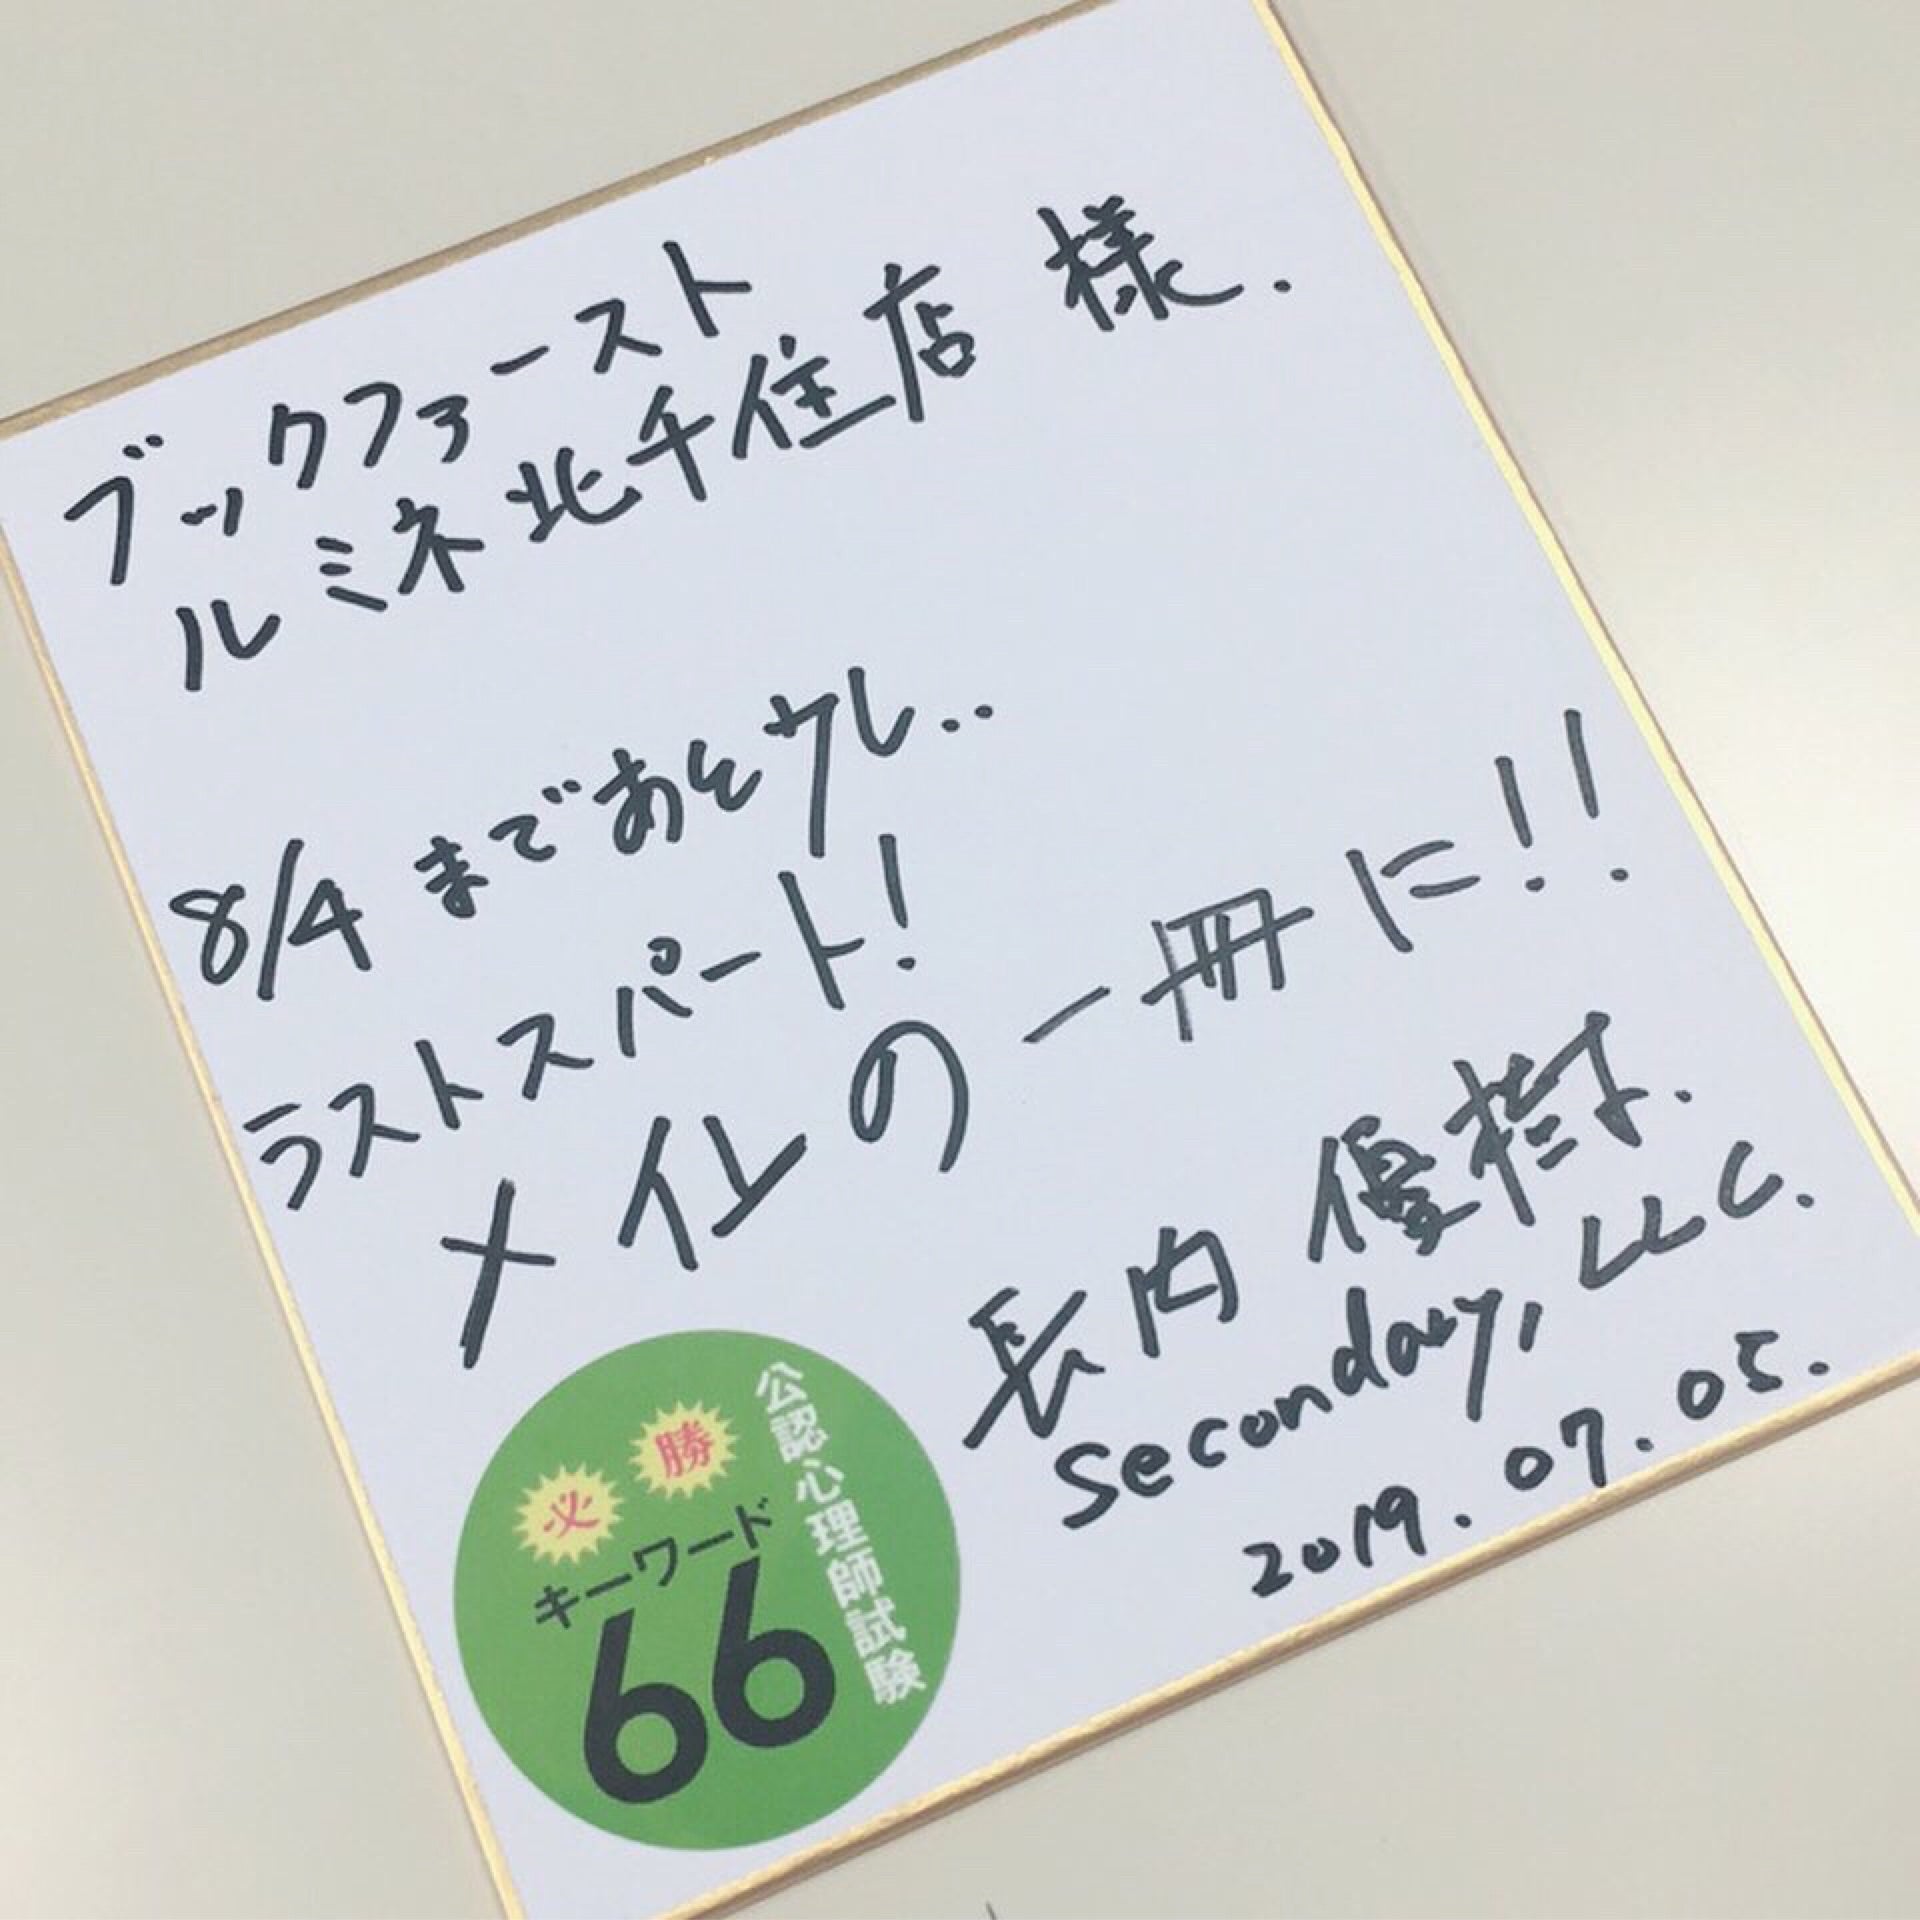 ブックファースト
ルミネ北千住店 様.
8/4 まであと少し..
ラストスパート!
メイレの一冊に!!
長内 優樹.
Seconday, LLC.
2019.07.05.
公認心理師試験
必勝
キーワード
66